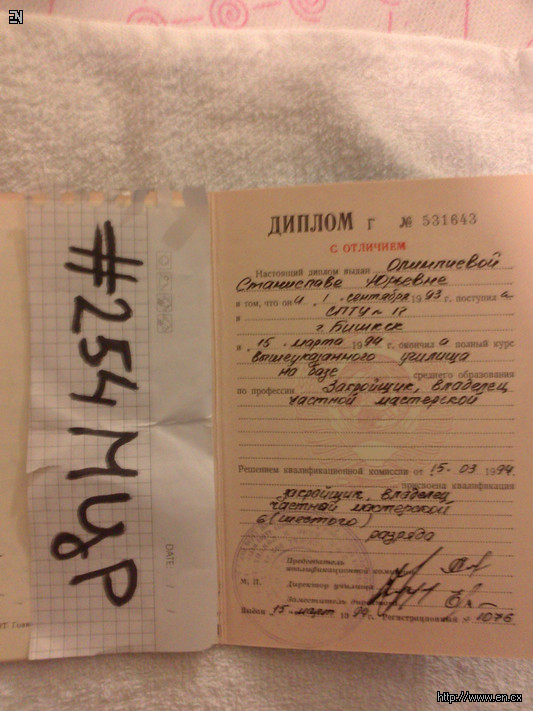 EN
#254 МЦР
DATE
/
ДИПЛОМ Г № 531643
С ОТЛИЧИЕМ
Настоящий диплом выдан Олимпиевой
Станиславе Юрьевне
в том, что он а 1 сентября 1993 г. поступил а
в СПТУ - 17
г. Бишкек
и 15 марта 1994 г. окончил а полный курс
вышеуказанного училища
на базе среднего образования
по профессии Закройщик, владелец
частной мастерской
Решением квалификационной комиссии от 15-03 1994.
присвоена квалификация
закройщик, владелец
частной мастерской
6 (шестого)
разряда
Председатель
квалификационной
Директор училища
Заместитель
М. П.
15 март 1994 г. Регистрационный № 1076
http://www.en.cx